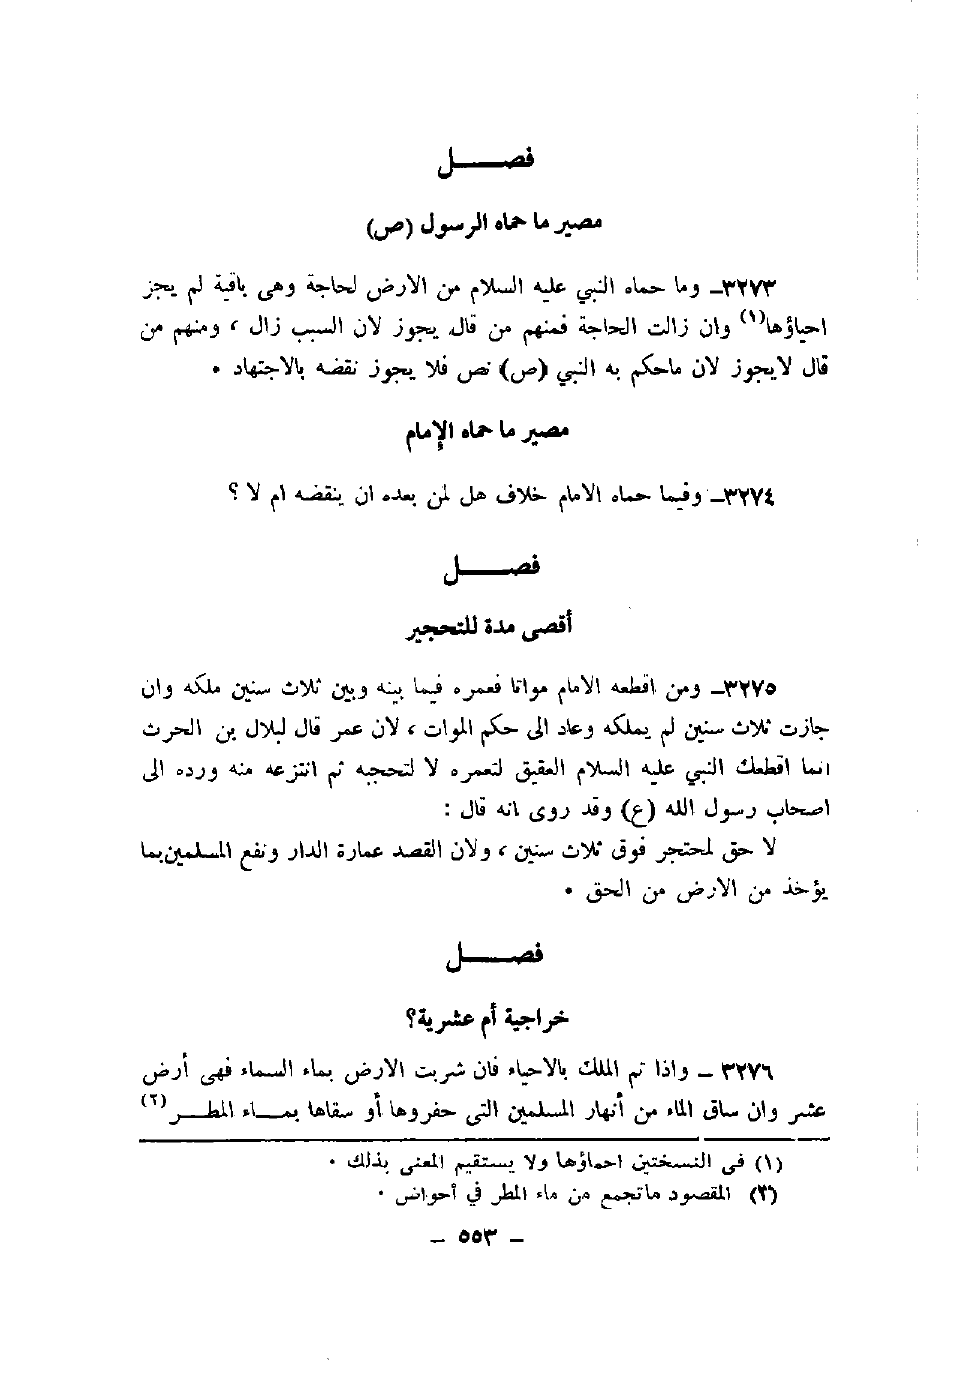 فصـــــل
مصير ما حماه الرسول (ص)
٣٢٧٣ــ وما حماه النبي عليه السلام من الارض لحاجة وهى باقية لم يجز
احياؤها(١) وان زالت الحاجة فمنهم من قال يجوز لان السبب زال ، ومنهم من
قال لايجوز لان ماحكم به النبي (ص) نص فلا يجوز نقضه بالاجتهاد .
مصير ما حماه الإمام
٣٢٧٤ــ وفيما حماه الامام خلاف هل لمن بعده ان ينقضه ام لا ؟
فصـــــل
أقصى مدة للتحجير
٣٢٧٥ــ ومن اقطعه الامام مواتا فعمره فيما بينه وبين ثلاث سنين ملكه وان
جازت ثلاث سنين لم يملكه وعاد الى حكم الموات ، لان عمر قال لبلال بن الحرث
انما اقطعك النبي عليه السلام العقيق لتعمره لا لتحجبه ثم انتزعه منه ورده الى
اصحاب رسول الله (ع) وقد روى انه قال :
لا حق لمحتجر فوق ثلاث سنين ، ولان القصد عمارة الدار ونفع المسلمين بما
يؤخذ من الارض من الحق .
فصـــــل
خراجية أم عشرية؟
٣٢٧٦ ــ واذا تم الملك بالاحياء فان شربت الارض بماء السماء فهى أرض
عشر وان ساق الماء من أنهار المسلمين التى حفروها أو سقاها بمـــاء المطـــر(٢)
(١) فى النسختين احماؤها ولا يستقيم المعنى بذلك .
(٢) المقصود ماتجمع من ماء المطر في أحواض .
ــ ٥٥٣ ــ